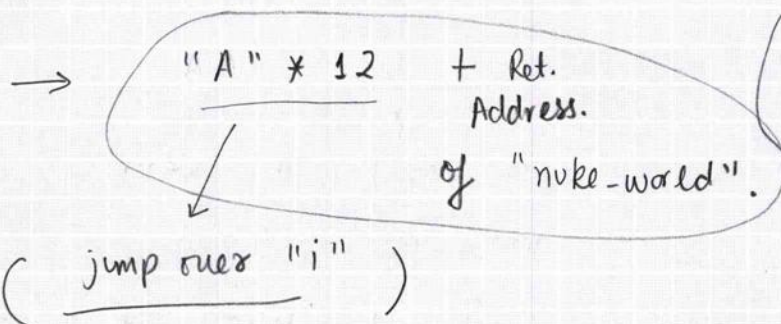 → "A" * 12 + Ret.
Address.
of "nuke-world".
( jump over "i" )